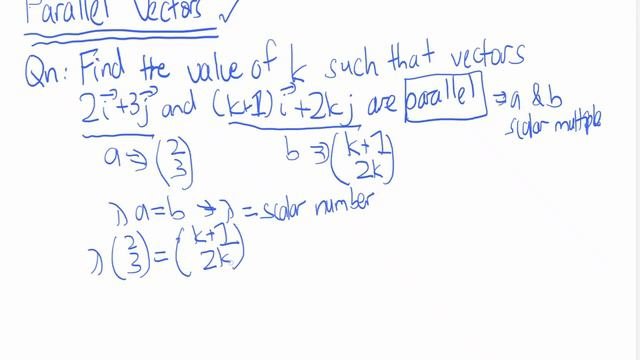 Parallel Vectors ✓
Qn: Find the value of k such that vectors
2i⃗+3j⃗ and (k+1)i⃗+2kj are parallel → a & b
scalar multiple
a ⇒ (2 3) b ⇒ (k+1 2k)
λa=b → λ = scalar number
λ(2 3) = (k+1 2k)